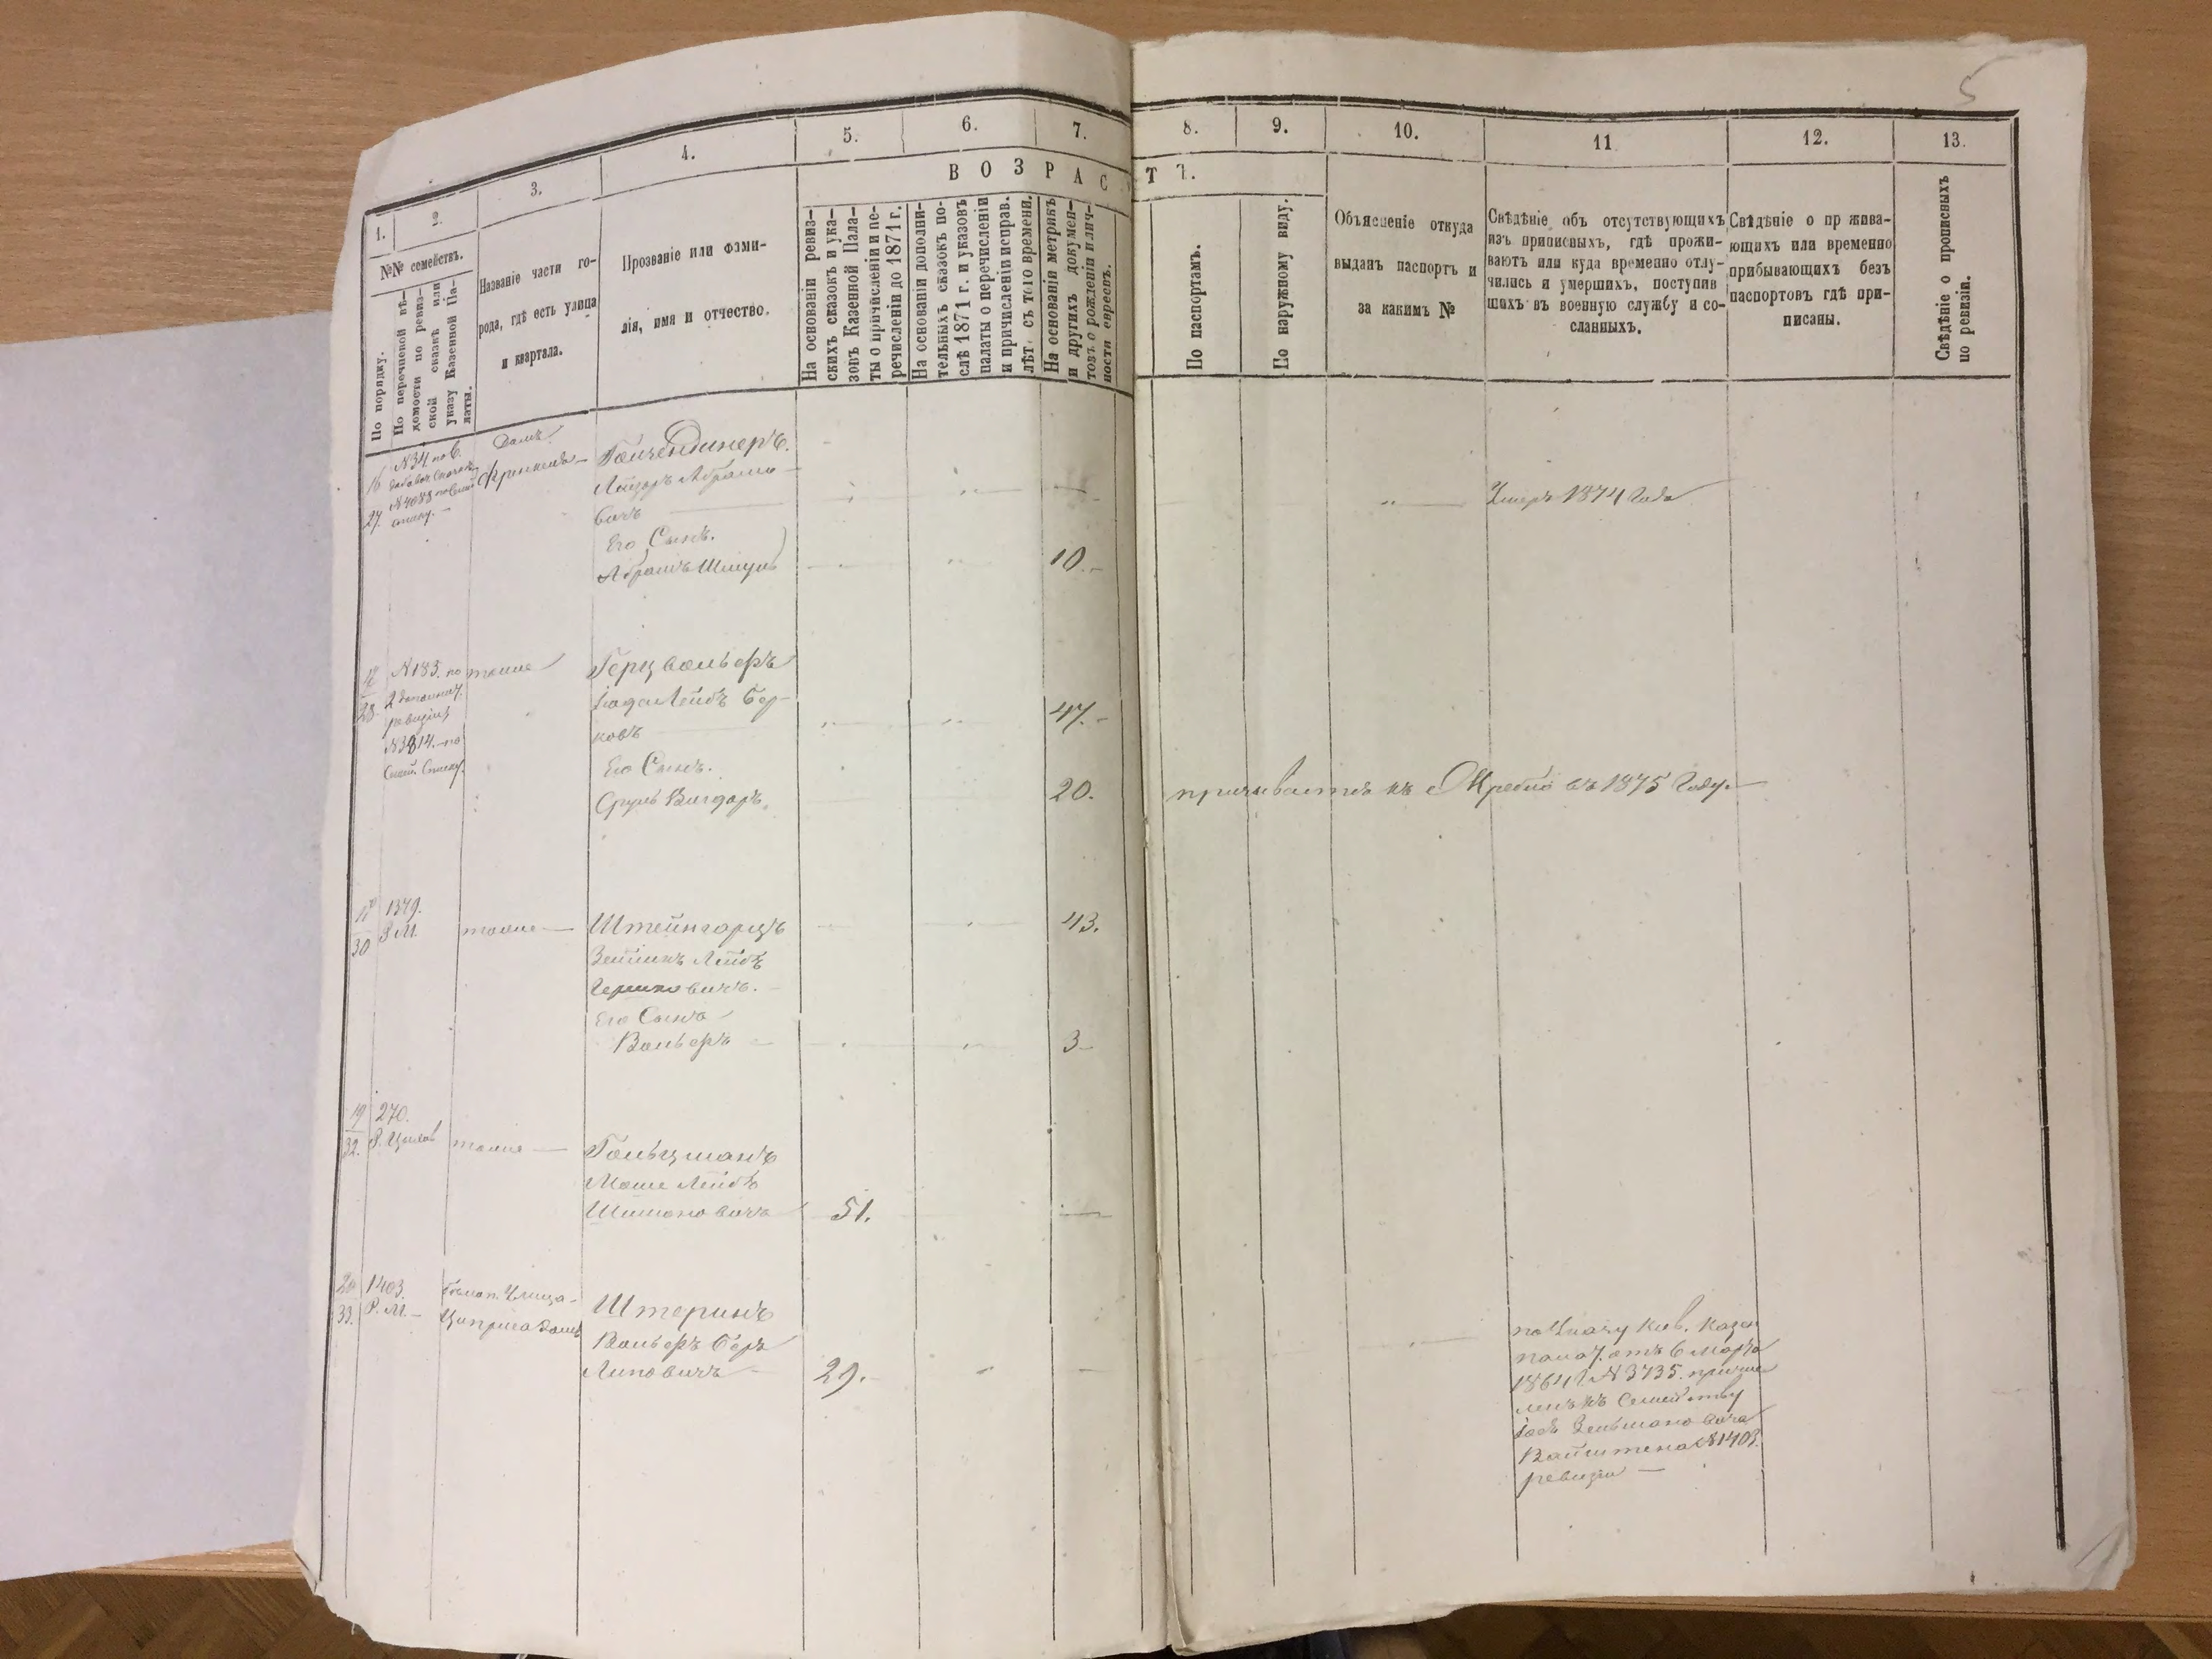 5
1.
2.
3.
4.
5.
6.
7.
8.
9.
10.
11
12.
13.
ВОЗРАСТЪ.
№№ семействъ.
По порядку.
По перечневой вѣ-
домости по ревиз-
ской сказкѣ или
указу Казенной Па-
латы.
Названіе части го-
рода, гдѣ есть улица
и квартала.
Прозваніе или фами-
лія, имя и отчество.
На основаніи ревиз-
скихъ сказокъ и ука-
зовъ Казенной Пала-
ты о причисленіи и пе-
речисленіи до 1871 г.
На основаніи дополни-
тельныхъ сказокъ по-
слѣ 1871 г. и указовъ
палаты о перечисленіи
и причисленіи исправ.
лѣт. съ того времени.
На основаніи метрикъ
и другихъ докумен-
товъ о рожденіи и лич-
ности евреевъ.
По паспортамъ.
По наружному виду.
Объясненіе откуда
выданъ паспортъ и
за какимъ №
Свѣдѣніе объ отсутствующихъ
изъ приписныхъ, гдѣ прожи-
ваютъ или куда временно отлу-
чились и умершихъ, поступив
шихъ въ военную службу и со-
сланныхъ.
Свѣдѣніе о пр жива-
ющихъ или временно
прибывающихъ безъ
паспортовъ гдѣ при-
писаны.
Свѣдѣніе о прописныхъ
по ревизіи.
16
27.
N34 по
N4088
Домъ
Лейзеръ Абрамо-
вичъ
Умеръ 1874 Года
Его Сынъ.
Абрамъ Шмуль
10.
28
N183. по
2 дополнит.
ревизіи
N3814. по
Симей. Списку.
тоже
Герцвольфъ
Лейбъ Бер-
ковъ
47.
Его Сынъ.
Сруль Вигдоръ.
20.
призывается къ Жребію въ 1875 Году
30
1379.
Р. М.
тоже
Штейнгарцъ
43.
Лейбъ
Гершковичъ.
Его Сынъ
Вольфъ
3
19
32.
270.
тоже
Гольцманъ
Моше Лейбъ
Шимоновичъ
51.
20
33.
1403.
Р. М.
Домъ
Штеринъ
Вольфъ Беръ
Липовичъ
29.
по Указу Кіев. Казен
палат. отъ 6 Марта
1864 г. N3735. причис
ленъ къ Семейству
Зельмановича
Вайнштена N1403.
ревизіи